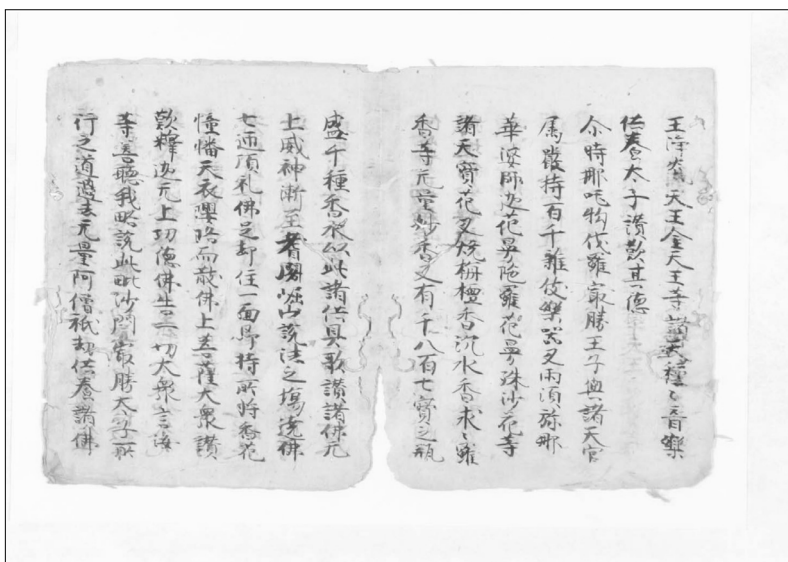 王淨天王金天王等諸天種〻音樂
供養太子讚歎其德
尒時那吒鈎伐羅㝡勝王子與諸天官
属嚴持百千雜伎樂器又雨須弥那
華婆師迦花曼陁羅花曼殊沙花等
諸天寶花又燒栴檀香沉水香求〻羅
香等无量妙香又有千八百七寶之瓶
盛千種香水以此諸供具歌讚諸佛无
上威神漸至耆闍崛山說法之場遶佛
七迊頂礼佛足却住一面持所將香花
幢幡天衣瓔珞而散佛上菩薩大衆讚
歎釋迦无上功德佛告一切大衆言汝
等善聽我略說此毗沙門㝡勝太子所
行之道過去无量阿僧祇劫供養諸佛